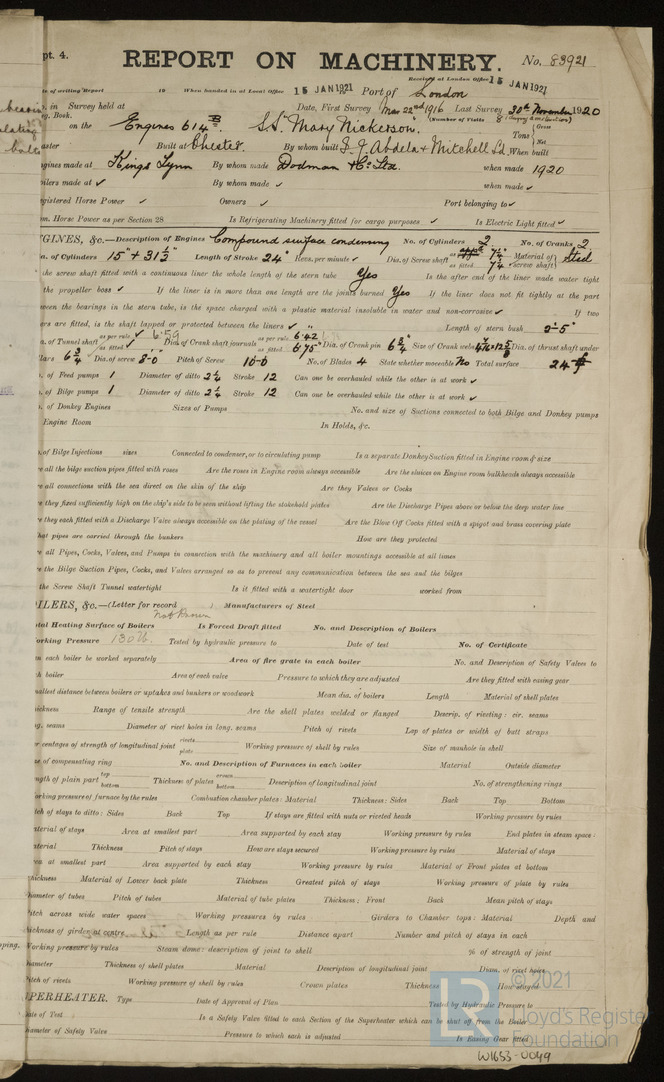 pt. 4.
REPORT ON MACHINERY. No. 83921
Received at London Office 15 JAN 1921
te of writing Report 19 When handed in at Local Office 15 JAN 1921 Port of London
o. in Survey held at Date, First Survey Mar 22nd 1916 Last Survey 30th November 1920
g. Book. (Number of Visits 8
on the Engines 614 S.S. Mary Nickerson. Tons { Gross Net
aster Built at Chester. By whom built I. J. Abdela & Mitchell Ld. When built
ngines made at Kings Lynn By whom made Dodman & Co. Ltd. when made 1920
oilers made at ✓ By whom made ✓ when made ✓
egistered Horse Power ✓ Owners ✓ Port belonging to ✓
om. Horse Power as per Section 28 Is Refrigerating Machinery fitted for cargo purposes ✓ Is Electric Light fitted ✓
NGINES, &c.—Description of Engines Compound surface condensing No. of Cylinders 2 No. of Cranks 2
a. of Cylinders 15" + 31½" Length of Stroke 24" Revs. per minute ✓ Dia. of Screw shaft as per rule 7¼" as fitted 7¼ Material of screw shaft } Steel
the screw shaft fitted with a continuous liner the whole length of the stern tube Yes Is the after end of the liner made water tight
the propeller boss ✓ If the liner is in more than one length are the joints burned Yes If the liner does not fit tightly at the part
ween the bearings in the stern tube, is the space charged with a plastic material insoluble in water and non-corrosive ✓ If two
ers are fitted, is the shaft lapped or protected between the liners ✓ Length of stern bush 2-5"
a. of Tunnel shaft as per rule 6.59 as fitted ✓ Dia. of Crank shaft journals as per rule 6.42 as fitted 6.75" Dia. of Crank pin 6¾ Size of Crank webs Dia. of thrust shaft under
llars 6¾ Dia. of screw 8-0 Pitch of Screw 10-0 No. of Blades 4 State whether moveable No Total surface 24
o. of Feed pumps 1 Diameter of ditto 2¼ Stroke 12 Can one be overhauled while the other is at work ✓
o. of Bilge pumps 1 Diameter of ditto 2¼ Stroke 12 Can one be overhauled while the other is at work ✓
o. of Donkey Engines Sizes of Pumps No. and size of Suctions connected to both Bilge and Donkey pumps
Engine Room In Holds, &c.
o. of Bilge Injections sizes Connected to condenser, or to circulating pump Is a separate Donkey Suction fitted in Engine room & size
re all the bilge suction pipes fitted with roses Are the roses in Engine room always accessible Are the sluices on Engine room bulkheads always accessible
re all connections with the sea direct on the skin of the ship Are they Valves or Cocks
re they fixed sufficiently high on the ship's side to be seen without lifting the stokehold plates Are the Discharge Pipes above or below the deep water line
re they each fitted with a Discharge Valve always accessible on the plating of the vessel Are the Blow Off Cocks fitted with a spigot and brass covering plate
hat pipes are carried through the bunkers How are they protected
re all Pipes, Cocks, Valves, and Pumps in connection with the machinery and all boiler mountings accessible at all times
re the Bilge Suction Pipes, Cocks, and Valves arranged so as to prevent any communication between the sea and the bilges
the Screw Shaft Tunnel watertight Is it fitted with a watertight door worked from
OILERS, &c.—(Letter for record ) Manufacturers of Steel
Not Known
otal Heating Surface of Boilers Is Forced Draft fitted No. and Description of Boilers
orking Pressure 130 lb. Tested by hydraulic pressure to Date of test No. of Certificate
an each boiler be worked separately Area of fire grate in each boiler No. and Description of Safety Valves to
ch boiler Area of each valve Pressure to which they are adjusted Are they fitted with easing gear
mallest distance between boilers or uptakes and bunkers or woodwork Mean dia. of boilers Length Material of shell plates
hickness Range of tensile strength Are the shell plates welded or flanged Descrip. of riveting: cir. seams
ng. seams Diameter of rivet holes in long. seams Pitch of rivets Lap of plates or width of butt straps
er centages of strength of longitudinal joint rivets plate Working pressure of shell by rules Size of manhole in shell
ze of compensating ring No. and Description of Furnaces in each boiler Material Outside diameter
ength of plain part top bottom Thickness of plates crown bottom Description of longitudinal joint No. of strengthening rings
orking pressure of furnace by the rules Combustion chamber plates: Material Thickness: Sides Back Top Bottom
itch of stays to ditto: Sides Back Top If stays are fitted with nuts or riveted heads Working pressure by rules
aterial of stays Area at smallest part Area supported by each stay Working pressure by rules End plates in steam space:
aterial Thickness Pitch of stays How are stays secured Working pressure by rules Material of stays
rea at smallest part Area supported by each stay Working pressure by rules Material of Front plates at bottom
hickness Material of Lower back plate Thickness Greatest pitch of stays Working pressure of plate by rules
iameter of tubes Pitch of tubes Material of tube plates Thickness: Front Back Mean pitch of stays
itch across wide water spaces Working pressures by rules Girders to Chamber tops: Material Depth and
hickness of girder at centre Length as per rule Distance apart Number and pitch of stays in each
orking pressure by rules Steam dome: description of joint to shell % of strength of joint
iameter Thickness of shell plates Material Description of longitudinal joint Diam. of rivet holes
itch of rivets Working pressure of shell by rules Crown plates Thickness How stayed
UPERHEATER. Type Date of Approval of Plan Tested by Hydraulic Pressure to
ate of Test Is a Safety Valve fitted to each Section of the Superheater which can be shut off from the Boiler
iameter of Safety Valve Pressure to which each is adjusted Is Easing Gear fitted
LR © 2021
Lloyd's Register
Foundation
W1653-0049